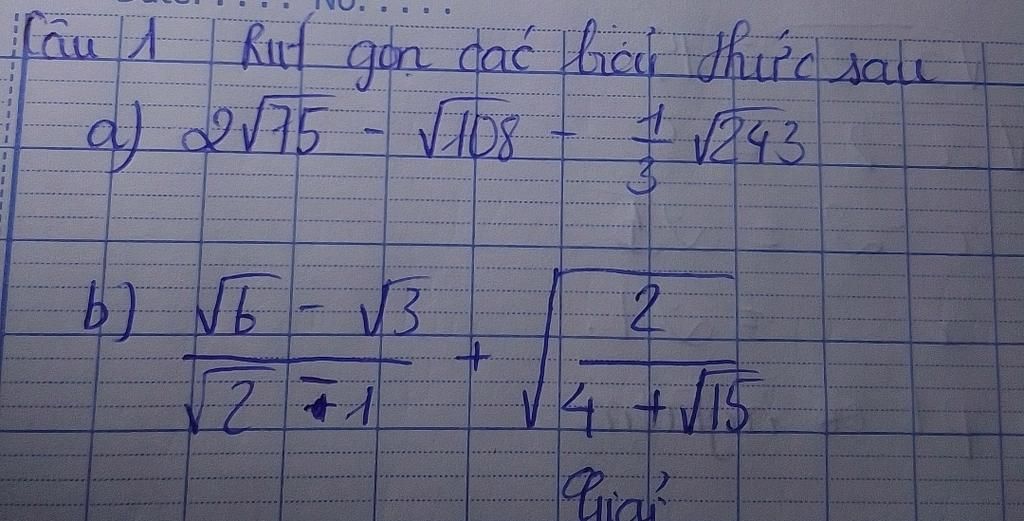 No.....
Câu 1 Rut gọn các biểu thức sau
a) 2√75 - √108 - 1/3 √243
b) (√6 - √3)/(√2 - 1) + √(2/(4 + √15))
Giải